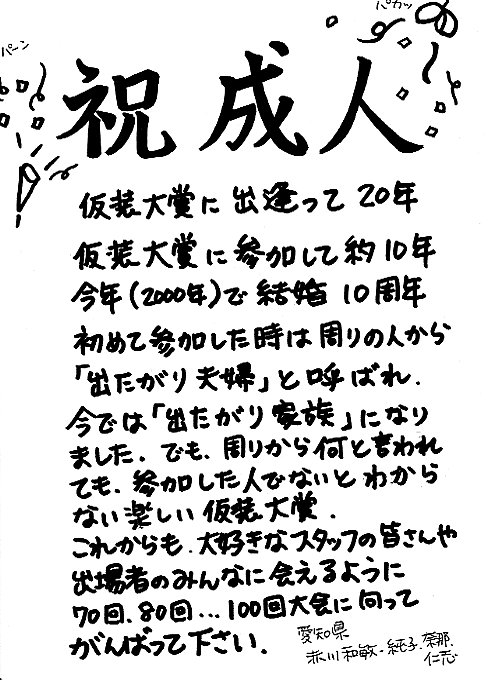 パカッ
パーン
祝 成人
仮装大賞に 出逢って 20年
仮装大賞に 参加して 約10年
今年(2000年)で 結婚 10周年
初めて参加した時は 周りの人から
「出たがり夫婦」と 呼ばれ.
今では「出たがり 家族」になり
ました. でも、周りから何と言われ
ても、参加した人でないと わから
ない 楽しい 仮装大賞.
これからも、大好きなスタッフの皆さんや
出場者のみんなに 会えるように
70回、80回…100回大会に 向って
がんばって 下さい.
愛知県
赤川和敏・純子.奈那.
仁志